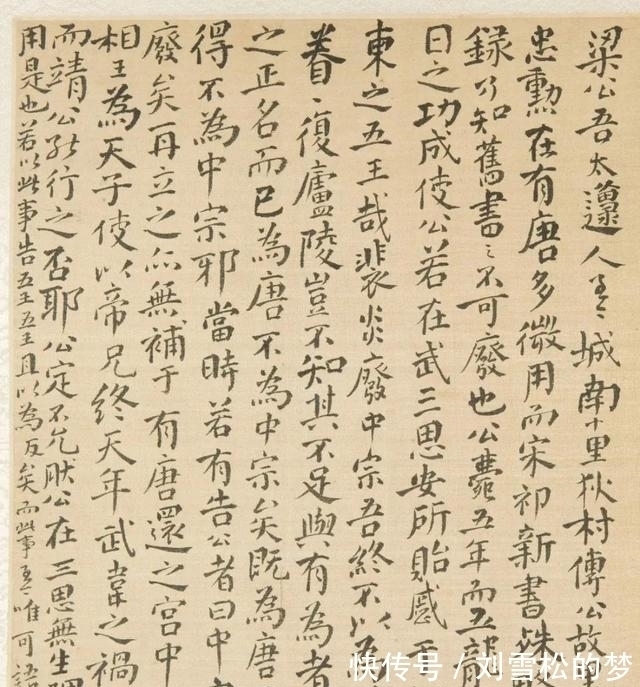 梁公吾太邍人城南十里狄村傳公故
忠勳在有唐多微用而宋祁新書殊
錄乃知舊書〻不可廢也公薨五年而五
日之功成使公若在武三思安所貽慼
東之五王哉裴炎廢中宗吾終不以為
眷〻復廬陵豈不知其不足與有為者
之正名而已為唐不為中宗矣既為唐
得不為中宗邪當時若有告公者曰中
廢矣再立之亦無補于有唐還之宮中
相王為天子使以帝兄終天年武韋之禍
而靖公能行之否耶公定不允肰公在三思無生
用是也若以此事告五王五王且以為反矣而此事唯可語
快传号 / 刘雪松的梦